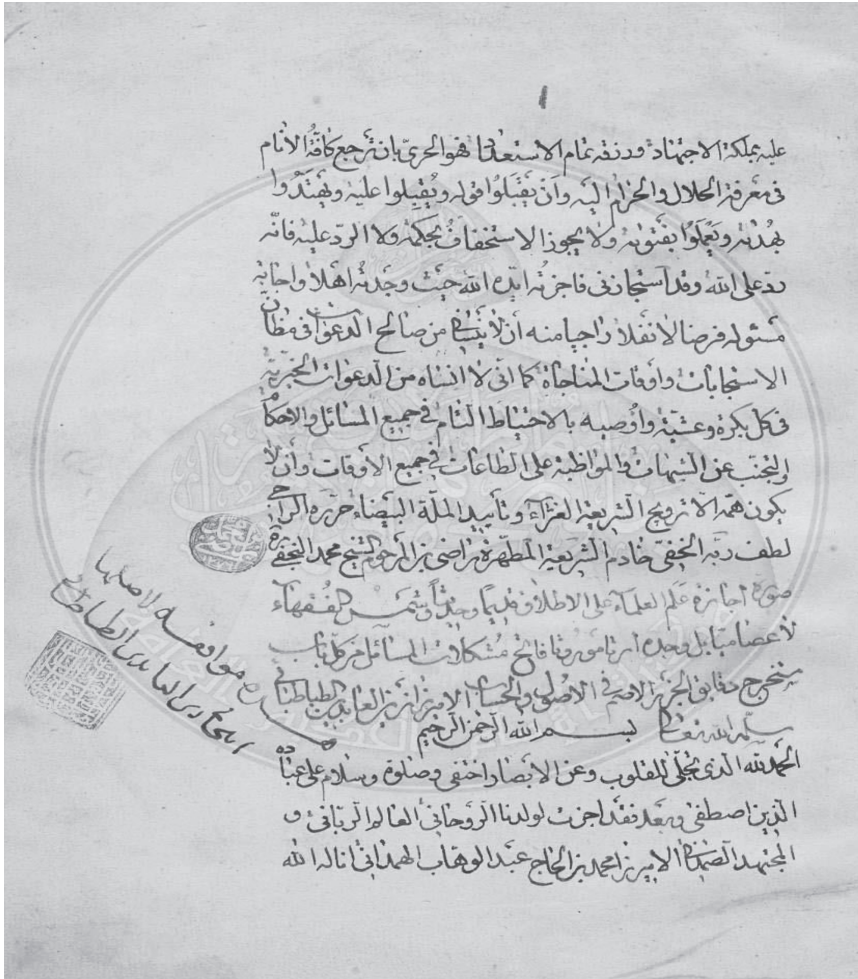 عليه بملكة الاجتهاد ورزقه تمام الاستعداد فهو الحريّ بان ترجع كافّة الأنام
فى معرفة الحلال والحرام اليه وأن يقبلوا قوله ويُقبلوا عليه ويهتدُوا
بهُداه ويعملوا بفتواه ولا يجوز الاستخفاف بحكمه ولا الردّ عليه فانّه
ردّ على الله وقد استجازنى فاجزته ايّده الله حيث وجدته اهلا واجابة
مسئوله فرضا لا نفلا راجيا منه أن لا ينسانى من صالح الدعوات فى مظانّ
الاستجابات واوقات المناجاة كما انّى لا انساه من الدعوات الخيريّة
فى كل بكرة وعشيّة وأوصيه بالاحتياط التام فى جميع المسائل والاحكام
والتجنّب عن الشبهات والمواظبة على الطاعات فى جميع الأوقات وأن لا
يكون همّه الّا ترويج الشريعة الغرّاء وتأييد الملّة البيضاء حرّره الراجى
لطف ربّه الخفى خادم الشريعة المطهّرة راضى بن المرحوم الشيخ محمد النجفى
صورة اجازة علم العلماء على الاطلاق قديما وحديثا وشمس الفقهاء
لأعصامنا بل وحده فاتح مشكلات المسائل من كل باب
مستخرج دقايق فى الأصول والحساب الاميرزا زين العابدين الطباطبائى
سلّمه الله تعالى بسم الله الرحمن الرحيم
الحمد لله الذى تجلّى للقلوب وعن الابصار اختفى وصلوة وسلام على عباده
الذين اصطفى وبعد فقد اجزت لولدنا الروحانى العالم الربّانى و
المجتهد الصمدانى الاميرزا محمد بن الحاج عبد الوهاب الهمدانى اناله الله
موافقة لاصلها
الطباطبائى